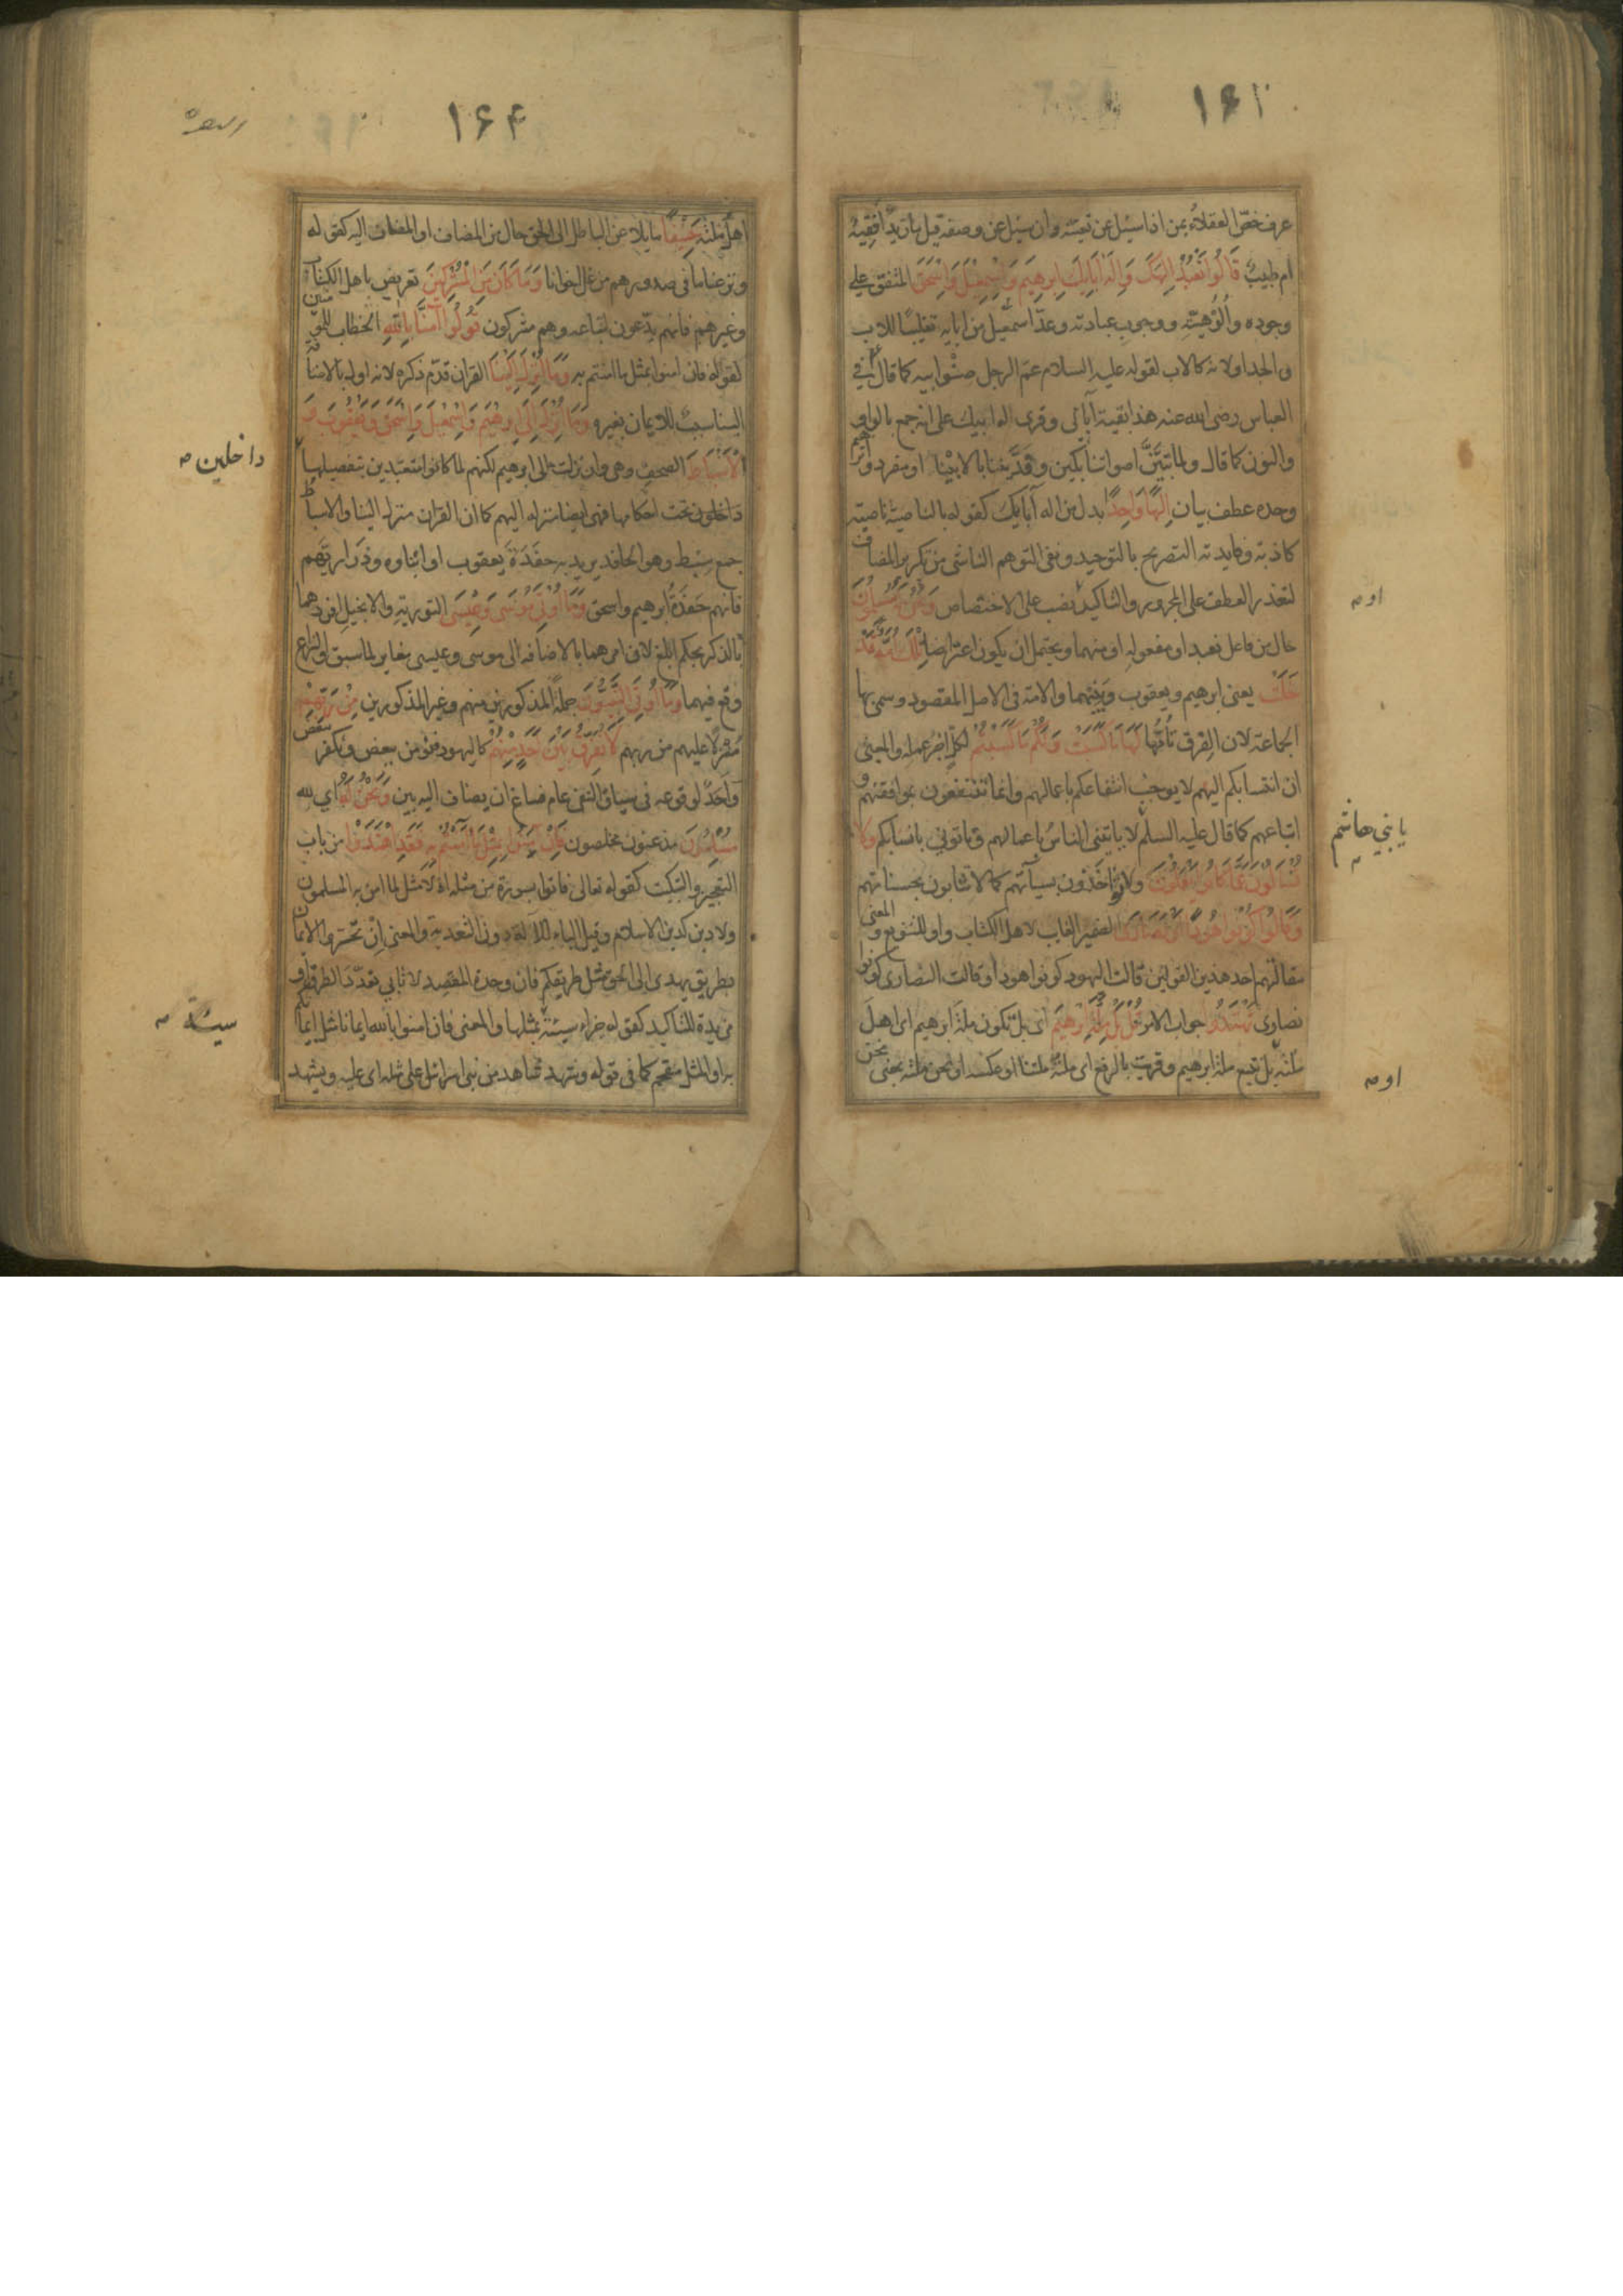 عرف خصّ العقلاء بمن اذا سئل عن تعينه وان سئل عن وصفه قيل ما زيد أفقيه
ام طبيب قَالُوا نَعْبُدُ اِلٰهَكَ وَاِلٰهَ اٰبَائِكَ اِبْرٰهِيمَ وَاِسْمٰعِيلَ وَاِسْحٰقَ المتفق على
وجوده والُوْهيّته ووجوب عبادته وعدّ اسمعيل من ابايه تغليبًا للاب
والجد او لانه كالاب لقوله عليه السلام عم الرجل صنو ابيه كما قال في
العباس رضى الله عنه هذا بقية آبائى وقرى اله ابيك على انه جمع بالواو
والنون كما قال ولما تبيّنَّ اصواتنا بكين وفدّيننا بالابينا او مفرد وابرهيم
وحده عطف بيان اِلٰهًا وَاحِدًا بدل من اله آبايك كقوله بالناصية ناصية
كاذبة وفايدته التصريح بالتوحيد ونفى التوهم الناشى من تكرير المضاف
لتعذر العطف على المجرور والتاكيد نصب على الاختصاص وَنَحْنُ لَهُ مُسْلِمُونَ
اوه
حال من فاعل نعبد او مفعوله او منهما ويحتمل ان يكون اعتراضا تِلْكَ اُمَّةٌ قَدْ
خَلَتْ يعنى ابرهيم ويعقوب وبنيهما والامة فى الاصل المقصود وسمى بها
الجماعة لان الفرق تأمّها لَهَا مَا كَسَبَتْ وَلَكُمْ مَا كَسَبْتُمْ لكلٍ اجر عمله والمعنى
ان انتسابكم اليهم لا يوجب انتفاعكم باعمالهم وانما تنتفعون بموافقتهم و
اتباعهم كما قال عليه السلم لا ياتينى الناس باعمالهم وتاتونى بانسابكم وَلَا
يا بني هاشم
تُسْئَلُونَ عَمَّا كَانُوا يَعْمَلُونَ ولا تؤاخذون بسيآتهم كما لا تثابون بحسناتهم
وَقَالُوا كُونُوا هُودًا اَوْ نَصَارٰى الضمير الغايب لاهل الكتاب واو للتنويع والمعنى
مقالتهم احد هذين القولين قالت اليهود كونوا هودا وقالت النصارى كونوا
نصارى تَهْتَدُوا جواب الامر قُلْ بَلْ مِلَّةَ اِبْرٰهِيمَ اى بل تكون ملة ابرهيم اى اهل
ملته بل نتبع ملة ابرهيم وقريت بالرفع اى ملته ملتنا او عكسه او نحن ملته بمعنى نحن
اوه
١۶۴
البقرة
اهل ملته حَنِيفًا مايلا عن الباطل الى الحق حال من المضاف او المضاف اليه كقوله
ونزعنا ما فى صدورهم من غل اخوانا وَمَا كَانَ مِنَ الْمُشْرِكِينَ تعريض باهل الكتاب
وغيرهم فانهم يدّعون اتباعه وهم مشركون قُولُوا آمَنَّا بِاللّٰهِ الخطاب للمؤمنين
لقوله فان امنوا بمثل ما امنتم به وَمَا اُنْزِلَ اِلَيْنَا القران قدّم ذكره لانه اول بالاضافة
الينا سبب للايمان بغيره وَمَا اُنْزِلَ اِلٰى اِبْرٰهِيمَ وَاِسْمٰعِيلَ وَاِسْحٰقَ وَيَعْقُوبَ وَ
الْاَسْبَاطِ الصحف وهى وان نزلت الى ابرهيم لكنهم لما كانوا متعبدين بتفصيلها
داخلين
داخلون تحت احكامها فهى ايضا منزلة اليهم كما ان القران منزل الينا والاسباط
جمع سِبط وهو الحافد يريد به حفَدَةَ يعقوب او ابناوه وذراريهم
فانهم حَفَدَةُ ابرهيم واسحق وَمَا اُوتِيَ مُوسٰى وَعِيسٰى التورية والانجيل افردهما
بالذكر بحكم ابلغ لان امرهما بالاضافة الى موسى وعيسى مغاير لما سبق والنزاع
وقع فيهما وَمَا اُوتِيَ النَّبِيُّونَ جملة المذكورين منهم وغير المذكورين مِنْ رَبِّهِمْ
منزلا عليهم من ربهم لَا نُفَرِّقُ بَيْنَ اَحَدٍ مِنْهُمْ كاليهود فنؤمن ببعض ونكفر ببعض
وَاَحَدٌ لوقوعه فى سياق النفى عام فساغ ان يضاف اليه بين وَنَحْنُ لَهُ اي لله
مُسْلِمُونَ مذعنون مخلصون فَاِنْ آمَنُوا بِمِثْلِ مَا آمَنْتُمْ بِهِ فَقَدِ اهْتَدَوْا من باب
التعجيز والتبكيت كقوله تعالى فاتوا بسورة من مثله اذ لا مثل لما امن به المسلمون
ولا دين كدين الاسلام وقيل الباء للآلة دون التعدية والمعنى اِنْ تحرّوا الايمان
بطريق يهدى الى الحق مثل طريقكم فان وحدة المقصد لا تابى تعدّد الطرق او
مزيدة للتاكيد كقوله جزاء سيئة بمثلها والمعنى فان امنوا بالله ايمانا مثل ايمانكم
سيئة
به او المثل مقحم كما فى قوله وشهد شاهد من بنى اسرائيل على مثله اى عليه ويشهد